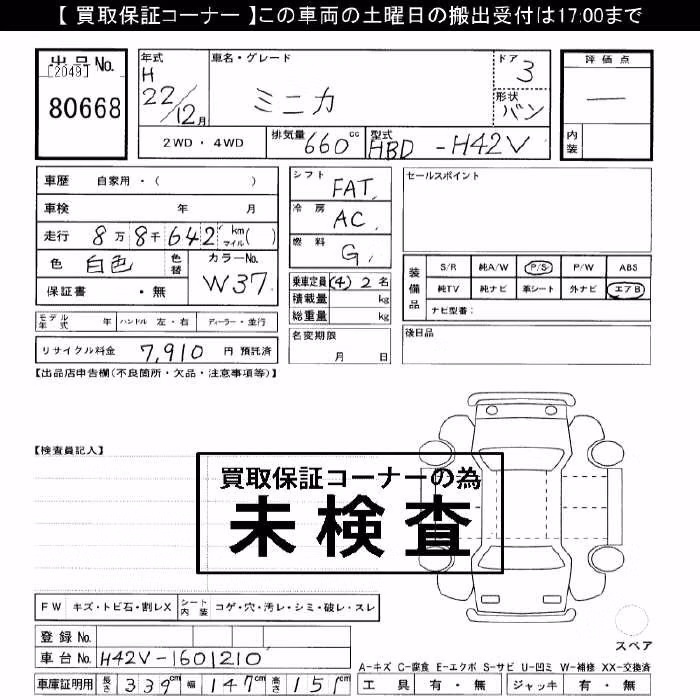 【 買取保証コーナー 】この車両の土曜日の搬出受付は17:00まで
出品No.
[2049]
80668
年式
H
22/12月
車名・グレード
ミニカ
ドア
3
形状
バン
評価点
—
内装
2WD・4WD
排気量 660 cc
型式 HBD - H42V
車歴 自家用・( )
車検 年 月
走行 8万8千642 km マイル( )
色 白色 色替
カラーNo. W37
保証書 ・無
シフト FAT
冷房 AC
燃料 G
乗車定員 (4) 2 名
積載量 kg
総重量 kg
名変期限
月 日
セールスポイント
装備品
S/R 純A/W P/S P/W ABS
純TV 純ナビ 革シート 外ナビ エアB
ナビ型番:
後日品
モデル年式 年 ハンドル 左・右 ディーラー・並行
リサイクル料金 7,910 円 預託済
【出品店申告欄(不良箇所・欠品・注意事項等)】
【検査員記入】
買取保証コーナーの為
未検査
FW キズ・トビ石・割レX シート内装 コゲ・穴・汚レ・シミ・破レ・スレ
スペア
登録No.
車台No. H42V-1601210
A-キズ C-腐食 E-エクボ S-サビ U-凹ミ W-補修 XX-交換済
車庫証明用 長さ 339cm 幅 147cm 高さ 151cm
工具 有・無 ジャッキ 有・無